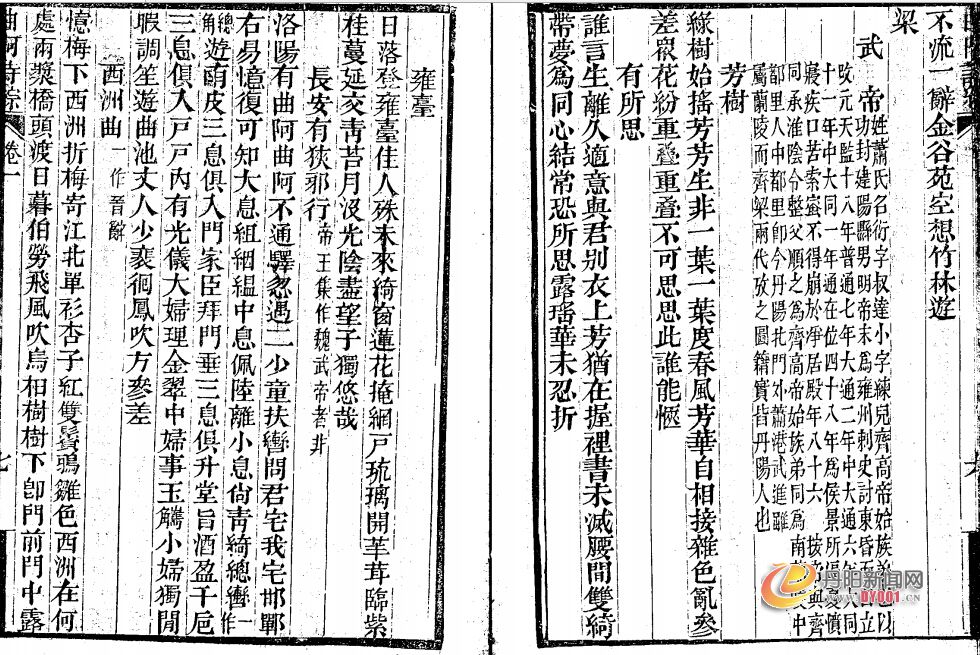 不流一辭金谷苑空想竹林遊
梁
武　帝
姓蕭氏名衍字叔達小字練兒齊高帝始族以
功封建陽縣男明帝末爲雍州刺史討東昏立
改元天監十八年普通七年大通二年中大通六年大同
十一年中大同一年通在位四十八年爲侯景所逼憂憤
寢疾口苦索蜜不得崩於淨居殿年八十六　按帝與齊
同承淮陰令整父順之爲齊高帝始族弟同爲南中
都里人中都里卽今丹陽北門外蕭港武進雖
屬蘭陵而齊梁兩代攷之圖籍實皆丹陽人也
芳樹
綠樹始搖芳芳生非一葉一葉度春風芳華自相接雜色亂參
差衆花紛重疊重疊不可思思此誰能愜
有所思
誰言生離久適意與君別衣上芳猶在握裡書未滅腰間雙綺
帶夢爲同心結常恐所思露瑤華未忍折
雍臺
日落登雍臺佳人殊未來綺窗蓮花掩網戶琉璃開䒠茸臨紫
桂蔓延交靑苔月沒光陰盡望子獨悠哉
長安有狹邪行帝王集作魏武帝者非
洛陽有曲阿曲阿不通驛忽遇二少童扶轡問君宅我宅邯鄲
右易憶復可知大息組絪縕中息佩陸離小息尙靑綺總轡一作
總角遊南皮三息俱入門家臣拜門垂三息俱升堂旨酒盈千卮
三息俱入戶戶內有光儀大婦理金翠中婦事玉觿小婦獨閒
暇調笙遊曲池丈人少裵徊鳳吹方參差
西洲曲一作晉辭
憶梅下西洲折梅寄江北單衫杏子紅雙鬢鴉雛色西洲在何
處兩槳橋頭渡日暮伯勞飛風吹烏桕樹樹下卽門前門中露
曲阿詩綜
卷一
七
丹阳新闻网
WWW.DY001.CN